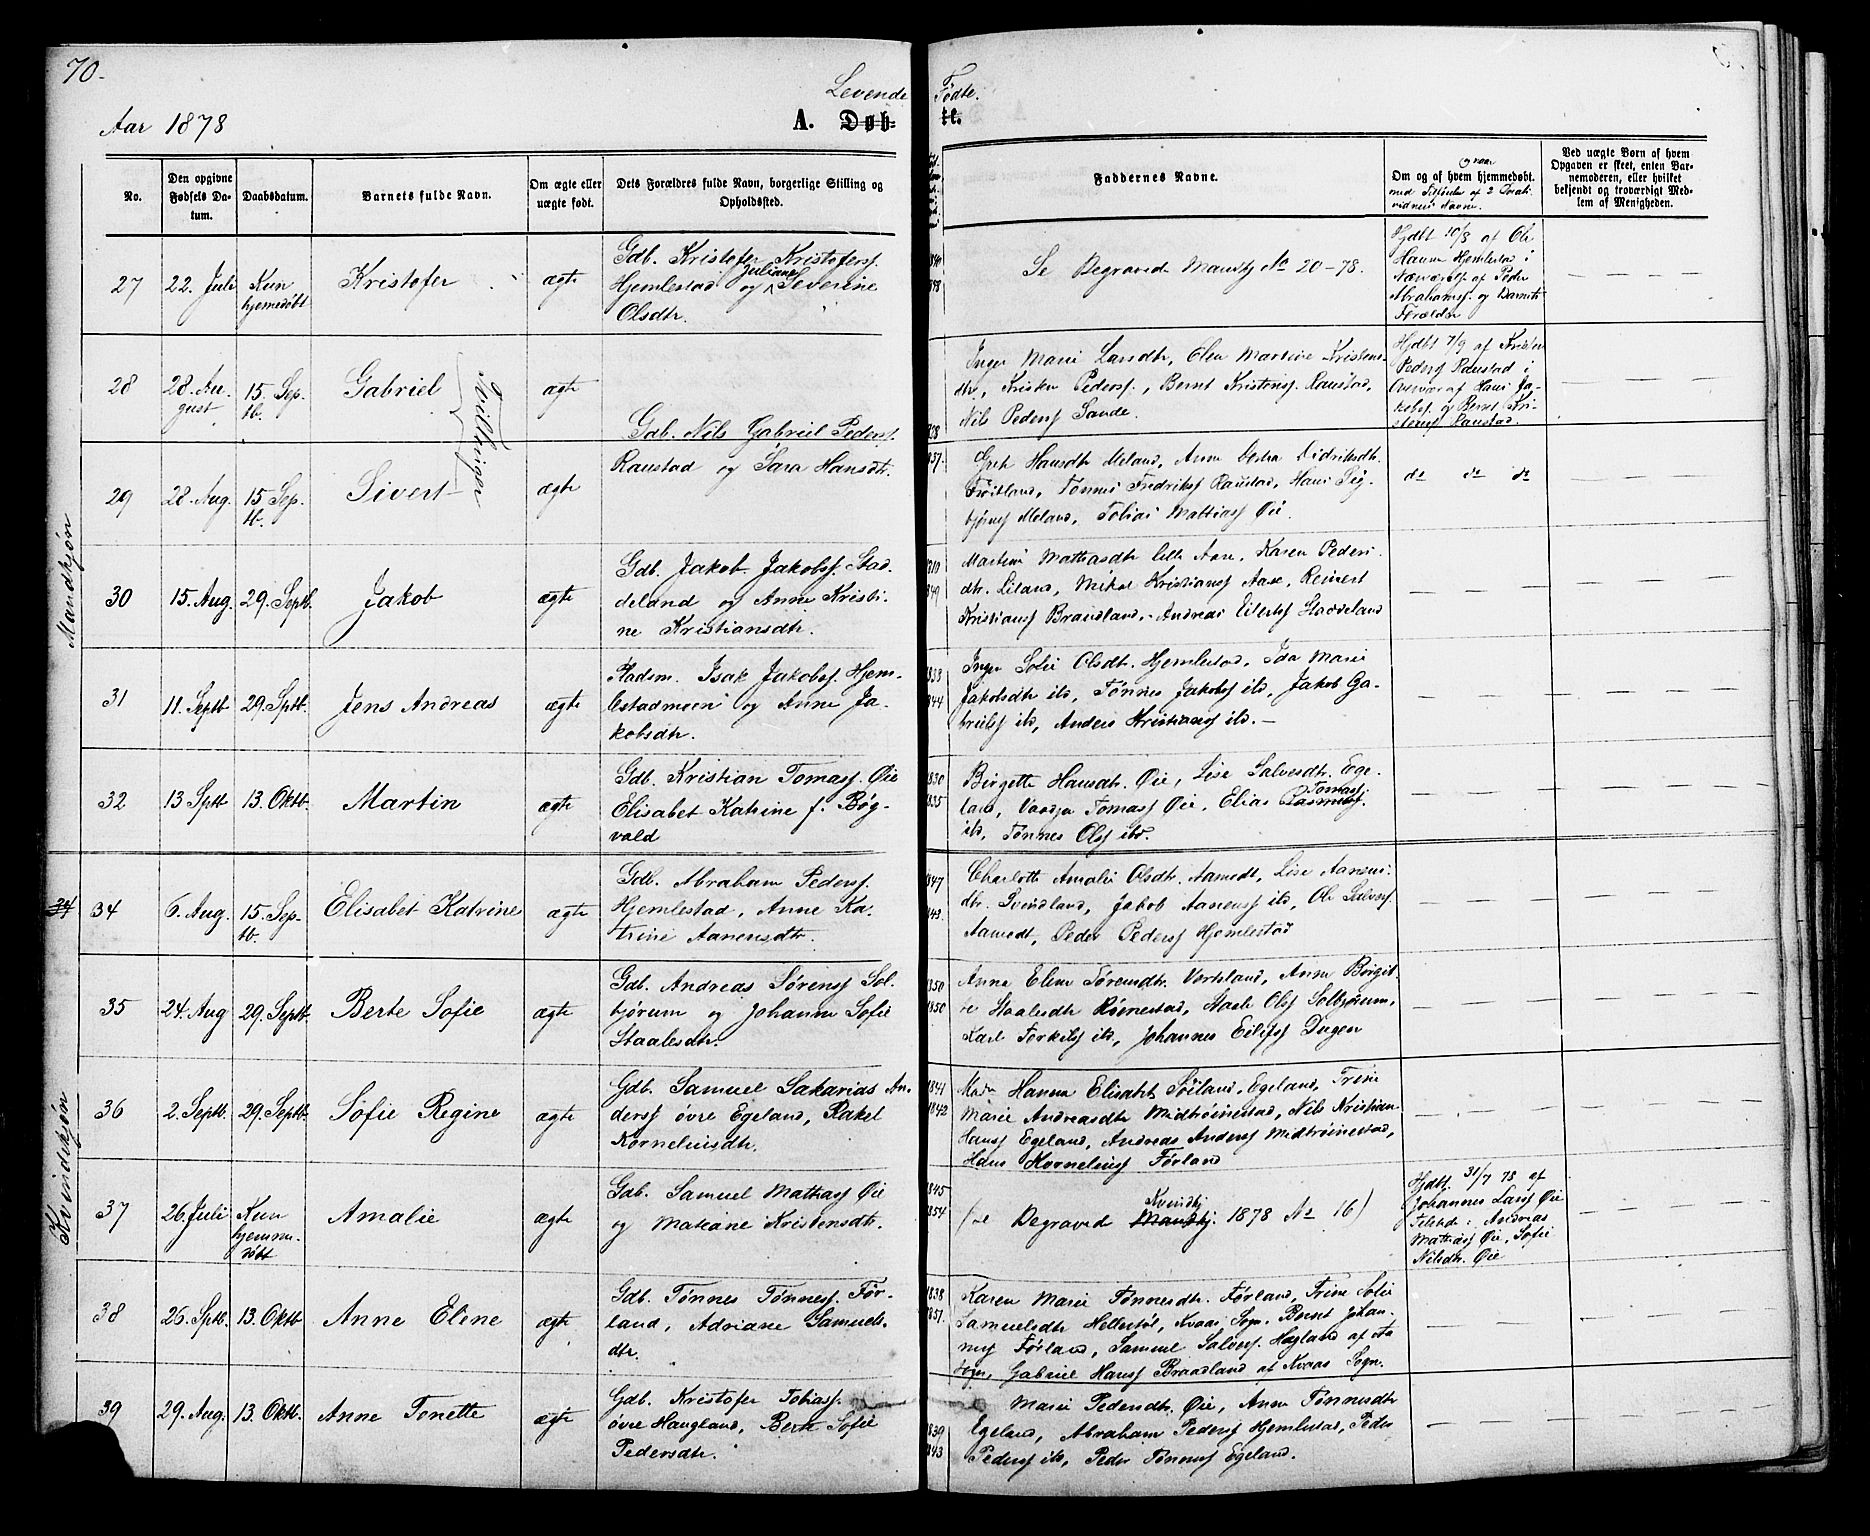 70.
Levende Fødte.
Aar 1878
A. Døbte.
No.
Den opgivne Fødsels Datum.
Daabsdatum.
Barnets fulde Navn.
Om ægte eller uægte født.
Dets Forældres fulde Navn, borgerlige Stilling og Opholdssted.
Faddernes Navne.
Om og af hvem hjemmedøbt.
Ved uægte Børn af hvem Opgaven er skeet, enten Barnemoderen, eller hvilket bekjendt og troværdigt Medlem af Menigheden.
Mandkjøn
27
22. Juli
Kun hjemedøbt
Kristofer
ægte
Gdb. Kristofer Kristofersf.
Hjemlestad og Juliane Severine
Olsdtr.
Se Begraved Mandkj No 20-78.
Hjdbt 10/8 af Ole
Hjemlestad i
Nærværelse af Peder
Abrahamsf. og Barnets
Forældre
28
28. August
15. Septb.
Gabriel
Tvillinger
ægte
Gdb. Nils Gabriel Pedersf.
Raustad og Sara Hansdtr.
Inger Marie Larsdtr, Elen Martine Kristensdtr,
Kristen Pedersf., Bernt Kristensf. Raustad,
Nils Pedersf Sande.
Hjdbt 7/9 af Kristen
Pedersf Raustad i
Overvær af Hans Jakobsf.
og Bernt Kristensf
Raustad.
29
28. Aug.
15. Septb.
Sivert
ægte
1857
Grete Hansdtr Meland, Anne Didriksdtr.
Frøitland, Tønnes Fredriksf Raustad, Hans Sigbjørnsf
Meland, Tobias Mattiasf Øie.
do do do
30
15. Aug.
29. Septb.
Jakob
ægte
Gdb. Jakob Jakobsf. Staddeland
og Anne Kristine
Kristiansdtr.
Martine Mathiasdtr lille Aase, Karen Pedersdtr.
Liland, Mikal Kristiansf Aase, Reinert
Kristiansf Brandland, Andreas Eilertsf Staddeland
31
11. Septb
29. Septb
Jens Andreas
ægte
Pladsm. Isak Jakobsf. Hjemlestadmoen
og Anne Jakobsdtr.
1833
1844
Inger Sofie Olsdtr. Hjemlestad, Ida Marie
Jakobsdtr ibd, Tønnes Jakobsf ibd, Jakob Gabrielsf
ibd, Anders Kristiansf ibd.
32
13 Septb
13. Oktb.
Martin
ægte
Gdb. Kristian Tomasf. Øie
Elisabet Katrine f. Bøgvald
1830
1835
Birgitte Hansdtr. Øie, Lise Salvesdtr. Egeland,
Tomasf Øie, Elias Tomasf.
ibd, Tønnes Olsf ibd.
Kvindekjøn
34
6. Aug.
15. Septb.
Elisabet Katrine
ægte
Gdb. Abraham Pedersf.
Hjemlestad, Anne Katrine
Aanensdtr.
1847
1843.
Charlotte Amalie Olsdtr. Aamodt, Lise Aanensdtr.
Svindland, Jakob Aanensf ibd, Ole Salvesf
Aamodt, Peder Pedersf Hjemlestad
35
24. Aug
29. Septb.
Berte Sofie
ægte
Gdb. Andreas Sørensf Solbjørum
og Johanne Sofie
Staalesdtr.
1850
1850
Anne Eline Sørensdtr. Vatsland, Anne Birgitte
Staalesdtr Røinestad, Staale Olsf Solbjørum,
Karl Torkilsf ibd, Johannes Eilifsf Dugen
36
2. Septb.
29. Septb.
Sofie Regine
ægte
Gdb. Samuel Sakarias Andersf
øvre Egeland, Rakel
Korneliusdtr.
1841
1842
Mad. Hanna Elisabet Søiland, Egeland, Trine
Marie Andreasdtr Midtrøinestad, Nils Kristian
Hansf Egeland, Andreas Andersf Midtrøinestad,
Hans Korneliusf Førland
37
26. Juli
Kun hjemmedøbt
Amalie
ægte
Gdb. Samuel Mathiasf Øie
og Mariane Kristensdtr.
1845
1854
(se Begraved Kvindkj. 1878 No 16)
Hjdbt. 31/7 78 af
Johannes Larsf Øie
Tilsted: Andreas
Mathiasf Øie, Sofie
Nilsdtr. Øie
38
26. Septb.
13. Oktb
Anne Eline
ægte
Gdb. Tønnes Tønnesf. Førland,
Adriane Samuelsdtr.
1838
1857.
Karen Marie Tønnesdtr. Førland, Trine Sofie
Samuelsdtr Hellestøl, Kvaas Sogn, Bernt Johannesf
Førland, Samuel Salvesf. Hægland af
Sogn, Gabriel Hansf Braadland af Kvaas Sogn.
39
29. Aug.
13. Oktb.
Anne Tonette
ægte
Gdb. Kristofer Tobiasf.
øvre Haugland, Berte Sofie
Pedersdtr.
1839
1843
Marie Pedersdtr. Øie, Anne Tønnesdtr
Egeland, Abraham Pedersf Hjemlestad, Peder
Pedersf ibd, Peder Tønnesf Egeland.